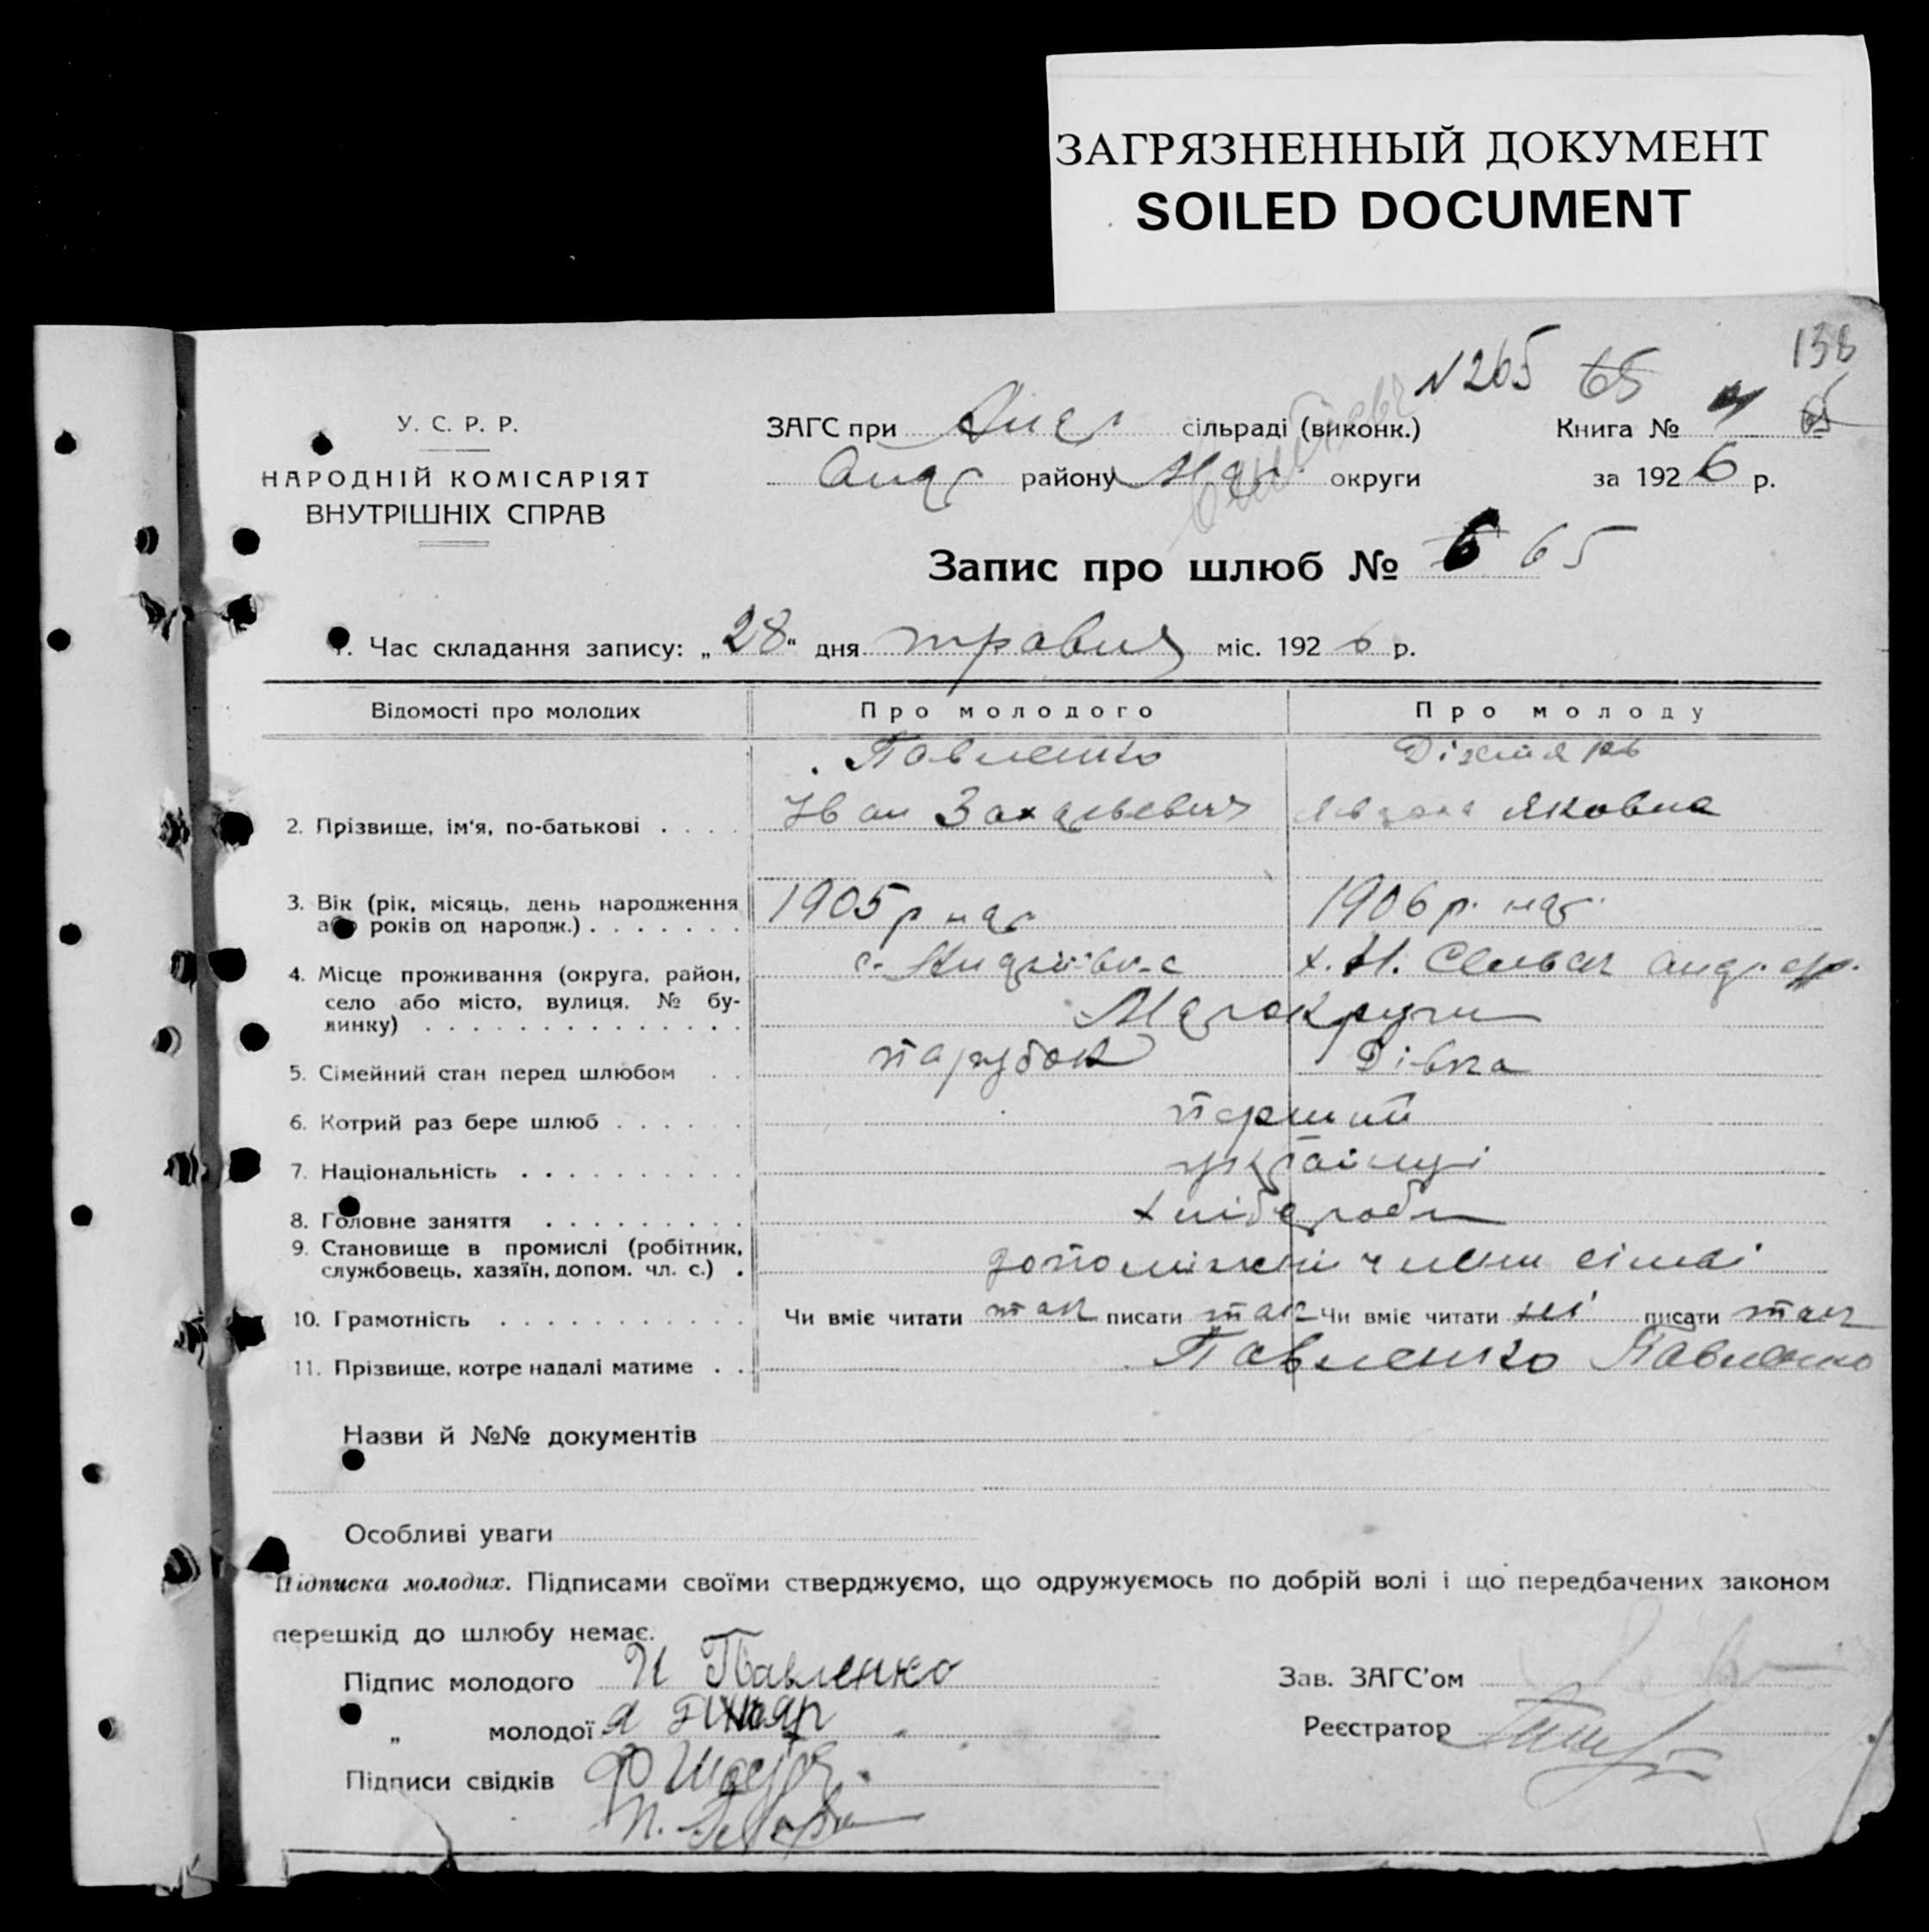 ЗАГРЯЗНЕННЫЙ ДОКУМЕНТ
SOILED DOCUMENT
138
N 265 65
У. С. Р. Р.
НАРОДНІЙ КОМІСАРІЯТ
ВНУТРІШНІХ СПРАВ
ЗАГС при сільраді (виконк.) Книга №
району округи за 1926 р.
Запис про шлюб № 6 65
1. Час складання запису: „28“ дня травня міс. 1926 р.
Відомості про молодих Про молодого Про молоду
Павленко
2. Прізвище, ім'я, по-батькові . . . . Іван Захарьевич Яковна
3. Вік (рік, місяць, день народження 1905 р нар 1906 р. нар.
або років од народж.) . . . . . . .
4. Місце проживання (округа, район, с. х. Н.
село або місто, вулиця, № бу-
динку) . . . . . . . . . . . . . .
5. Сімейний стан перед шлюбом . . парубок Дівка
6. Котрий раз бере шлюб . . . . . . перший
7. Національність . . . . . . . . . . українці
8. Головне заняття . . . . . . . . . хлібороби
9. Становище в промислі (робітник,
службовець, хазяїн, допом. чл. с.) . допоміжні члени сімьі
10. Грамотність . . . . . . . . . . . Чи вміє читати так писати так Чи вміє читати ні писати так
11. Прізвище, котре надалі матиме . . Павленко Павленко
Назви й №№ документів
Особливі уваги
Підписка молодих. Підписами своїми стверджуємо, що одружуємось по добрій волі і що передбачених законом
перешкід до шлюбу немає.
Підпис молодого И Павленко Зав. ЗАГС'ом
„ молодої Реєстратор
Підписи свідків